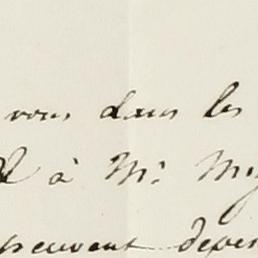 vous dans les
à Mr. My
peuvent deve